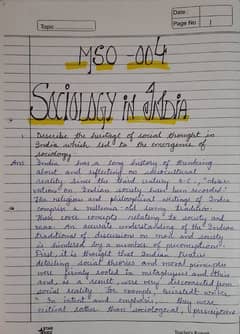 Date :
Topic
Page No 1
MSO - 004
SOCIOLOGY IN INDIA
1. Describe the heritage of social thought in
India which led to the emergence of
sociology
Ans India has a long history of thinking
about and reflecting on sociocultural
reality. Since the third century B.C., "obser
vations on Indian society have been recorded.
The religious and philosophical writings of India
comprise a millennia old living tradition.
These cover concepts relating to society and
man. An accurate understanding of the Indian
traditions of discussion on man and society
is hindered by a number of preconceptions.
First, it is thought that Indian
social theories and moral principles
were firmly rooted in metaphysics and ethics
and, as a result were very disconnected from
social reality. For example,
"In intent and emphasis, they were
rather than sociological, prescriptive
Teacher's Remark